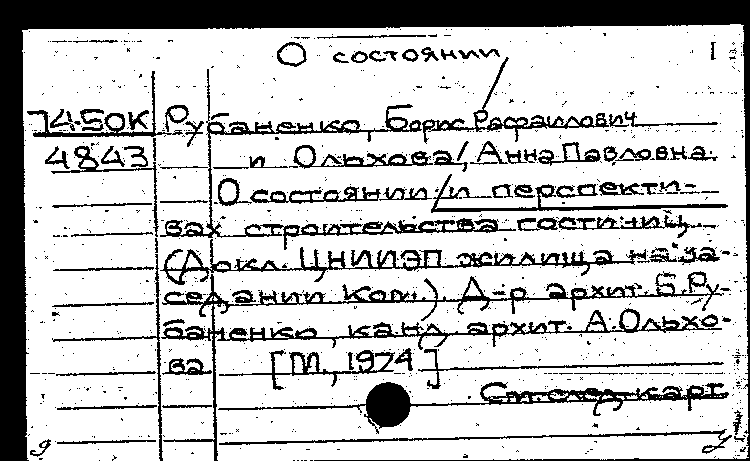 О состоянии I
74-50К Рубаненко, Борис Рафаилович
4843 и Ольхова, Анна Павловна.
О состоянии и перспекти-
вах строительства гостиниц.
(Докл. ЦНИИЭП жилища на за-
седании Ком.). Д-р архит. Б.Ру-
баненко, канд. архит. А.Ольхо-
ва [М., 1974]
См. след. карт.